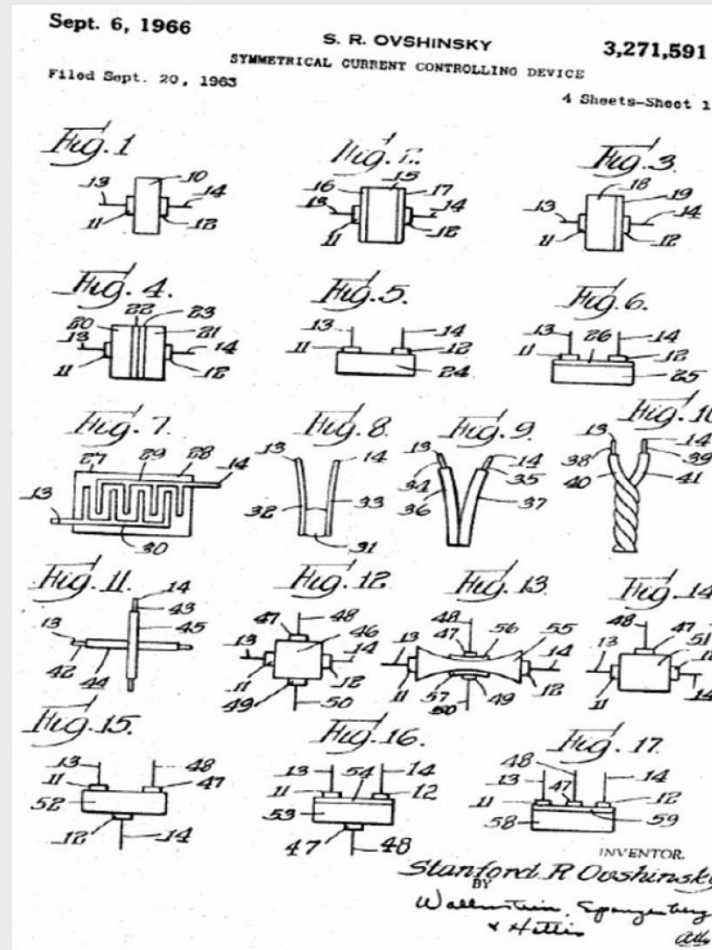 Sept. 6, 1966
S. R. OVSHINSKY
3,271,591
SYMMETRICAL CURRENT CONTROLLING DEVICE
Filed Sept. 20, 1963
4 Sheets-Sheet 1
Fig. 1
10
13
14
11
12
Fig. 2.
15
16
17
13
14
11
12
Fig. 3
18
19
13
14
11
12
Fig. 4.
22
23
20
21
13
14
11
12
Fig. 5
13
14
11
12
24
Fig. 6.
13
26
14
11
12
25
Fig. 7.
27
29
28
14
13
30
Fig. 8
13
14
32
33
31
Fig. 9
13
14
34
35
36
37
Fig. 10
13
14
38
39
40
41
Fig. 11.
14
43
13
45
42
44
Fig. 12
47
48
46
13
14
11
12
49
50
Fig. 13
48
47
56
55
13
14
11
12
57
49
50
Fig. 14
48
47
51
13
11
14
Fig. 15.
13
48
11
47
52
12
14
Fig. 16.
13
54
14
11
12
53
47
48
Fig. 17
48
13
47
14
11
12
58
59
INVENTOR.
Stanford R Ovshinsky
BY
Wallenstein, Spangenberg
& Hattis